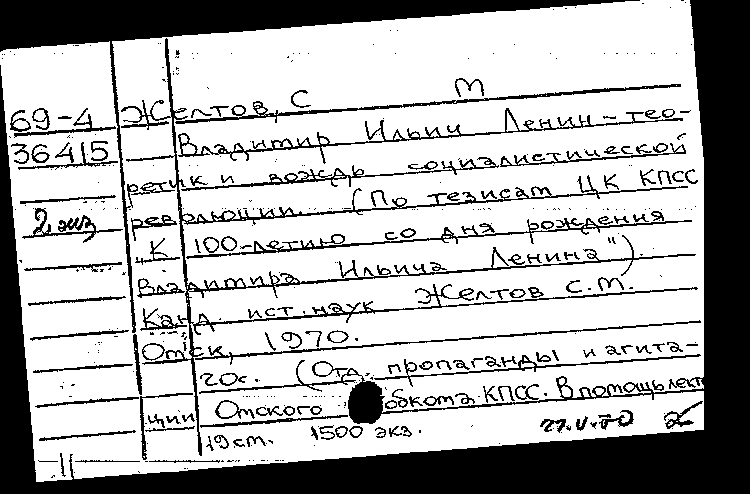 69-4 Желтов, С М
36415 Владимир Ильич Ленин - тео-
ретик и вождь социалистической
2 экз революции. (По тезисам ЦК КПСС
„К 100-летию со дня рождения
Владимира Ильича Ленина").
Канд. ист. наук Желтов С.М.
Омск, 1970.
20с. (Отд. пропаганды и агита-
ции Омского обкома КПСС. В помощь лект
19 см. 1500 экз. 27.V.70
11